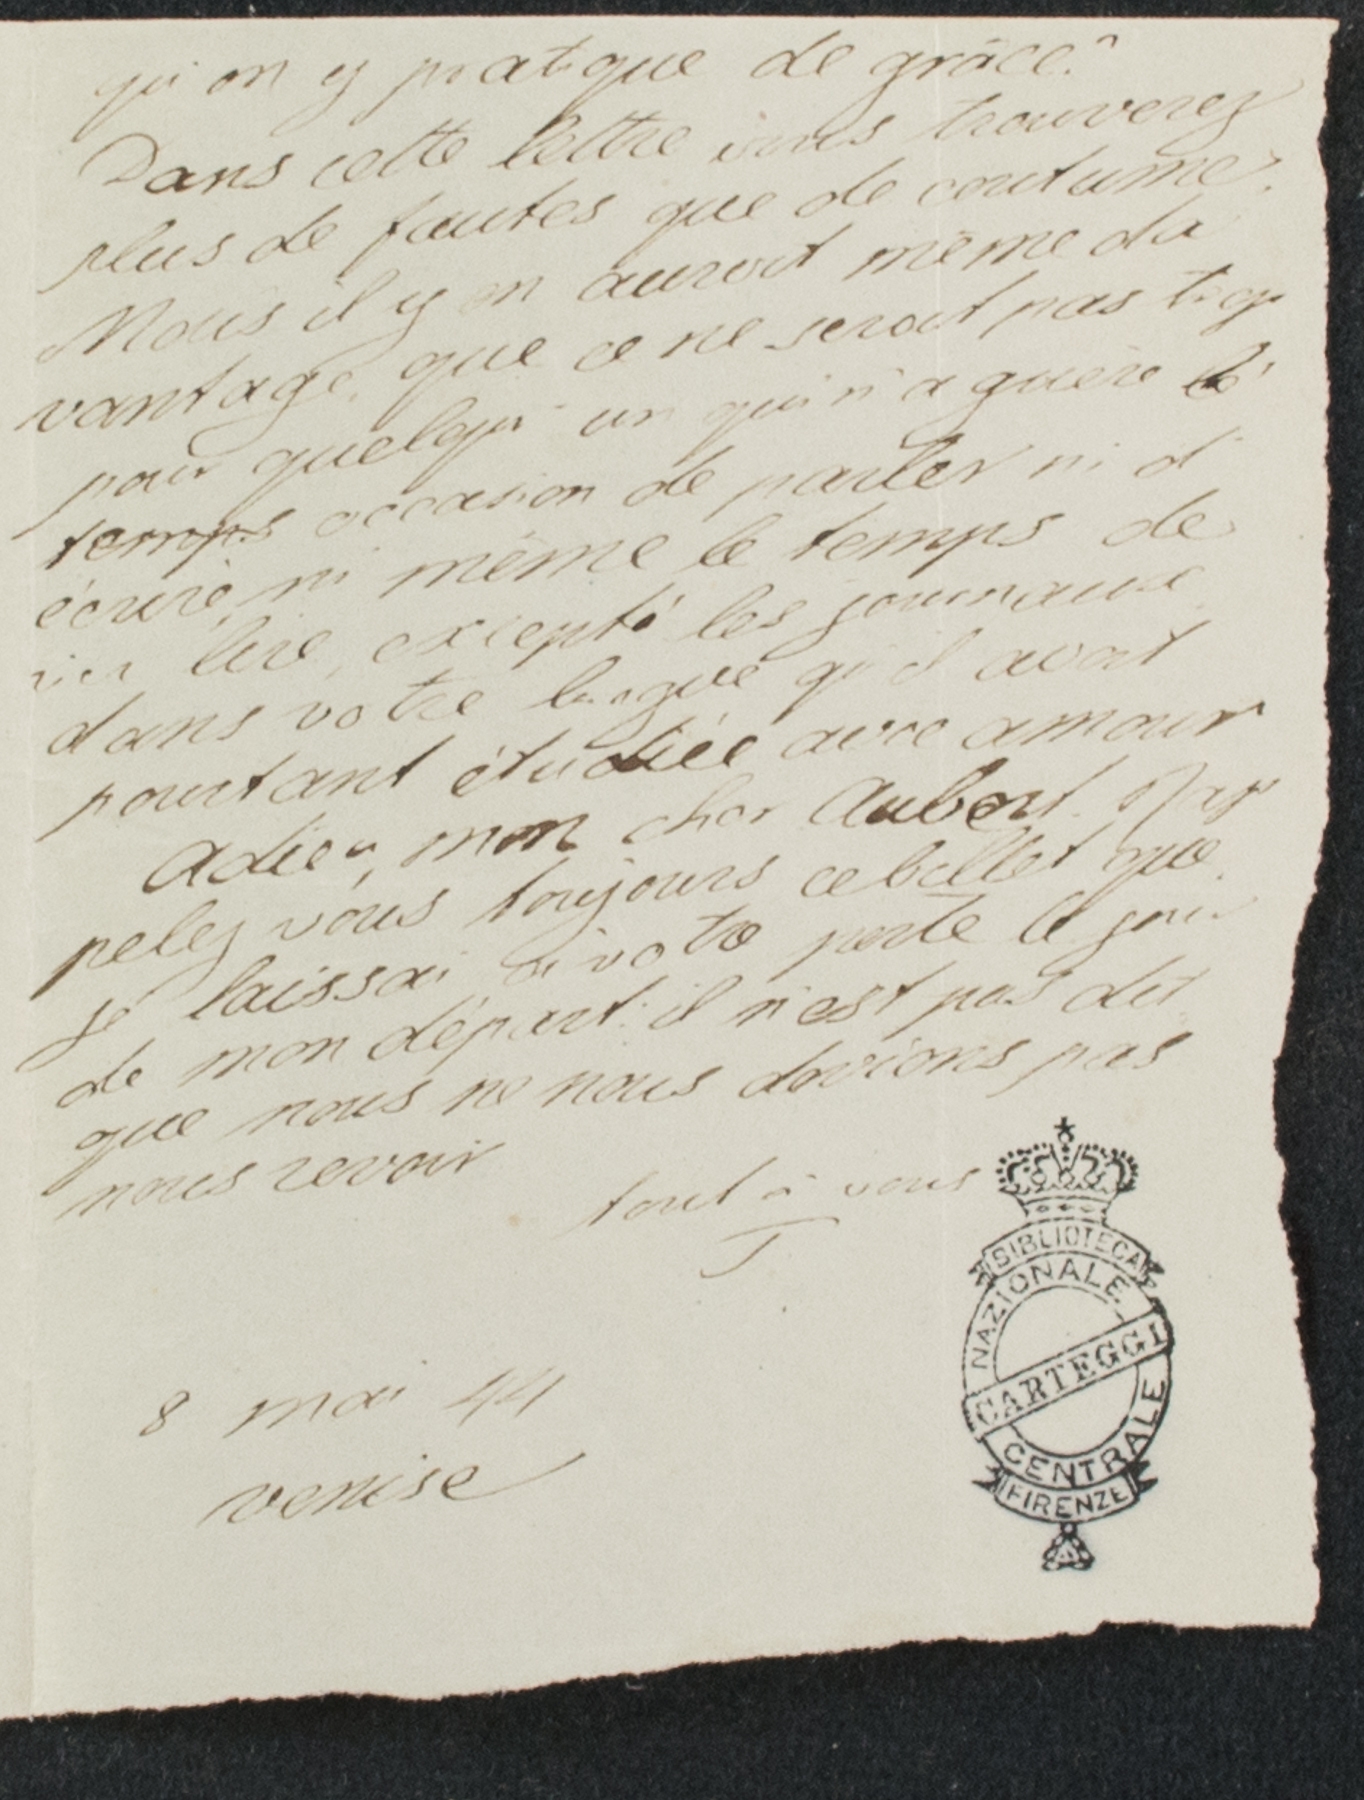 qu'on y pratique de grâce.
Dans cette lettre vous trouverez
plus de fautes que de coutume.
Mais il y en auroit même da
vantage, que ce ne seroit pas trop
pour quelqu'un qui n'a guère le
temps occasion de parler ni d'
écrire, ni même le temps de
rien lire, excepté les journaux
dans votre langue qu'il avait
pourtant étudiée avec amour
Adieu, mon cher Aubert. Rap
pelez vous toujours ce billet que
je laissai à votre porte le jour
de mon départ: il n'est pas dit
que nous ne nous devions pas
nous revoir
tout à vous
T
8 mai 44
venise
BIBLIOTECA
NAZIONALE
CARTEGGI
CENTRALE
FIRENZE